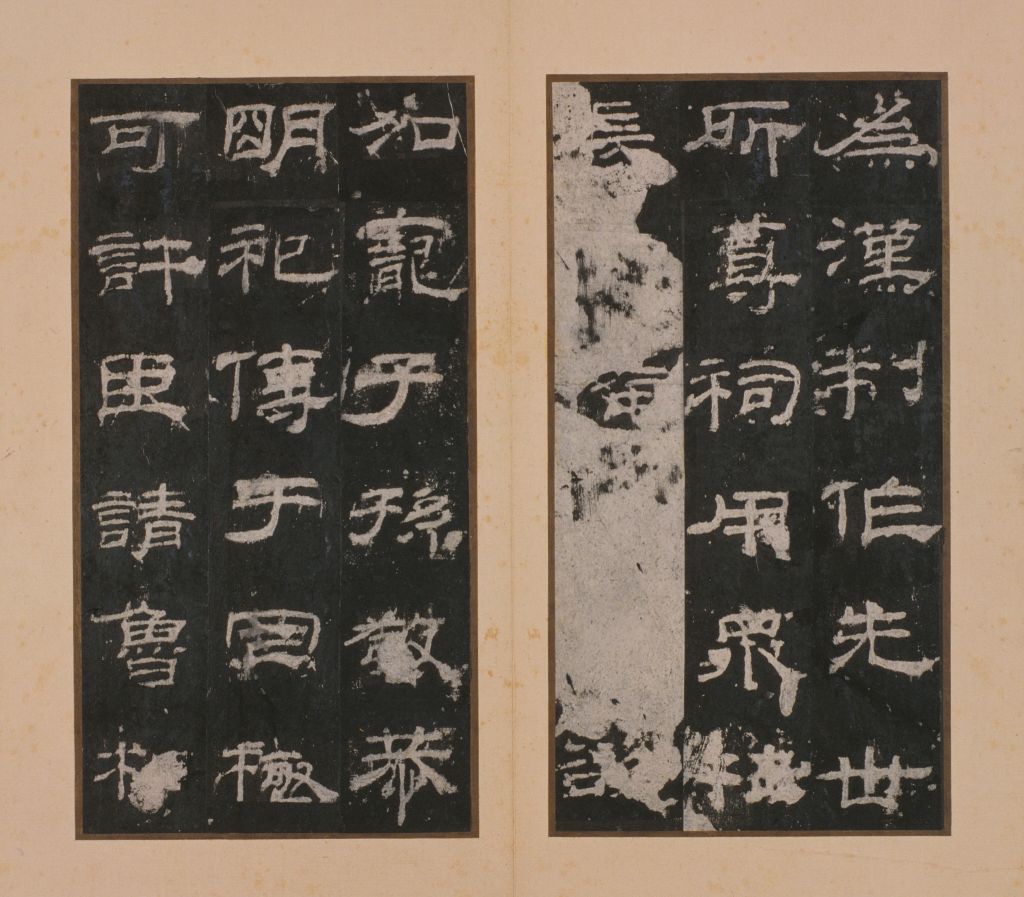 為漢制作先世
所尊祠用眾牲
長
加寵子孫敬恭
明祀傳于罔極
可許臣請魯相